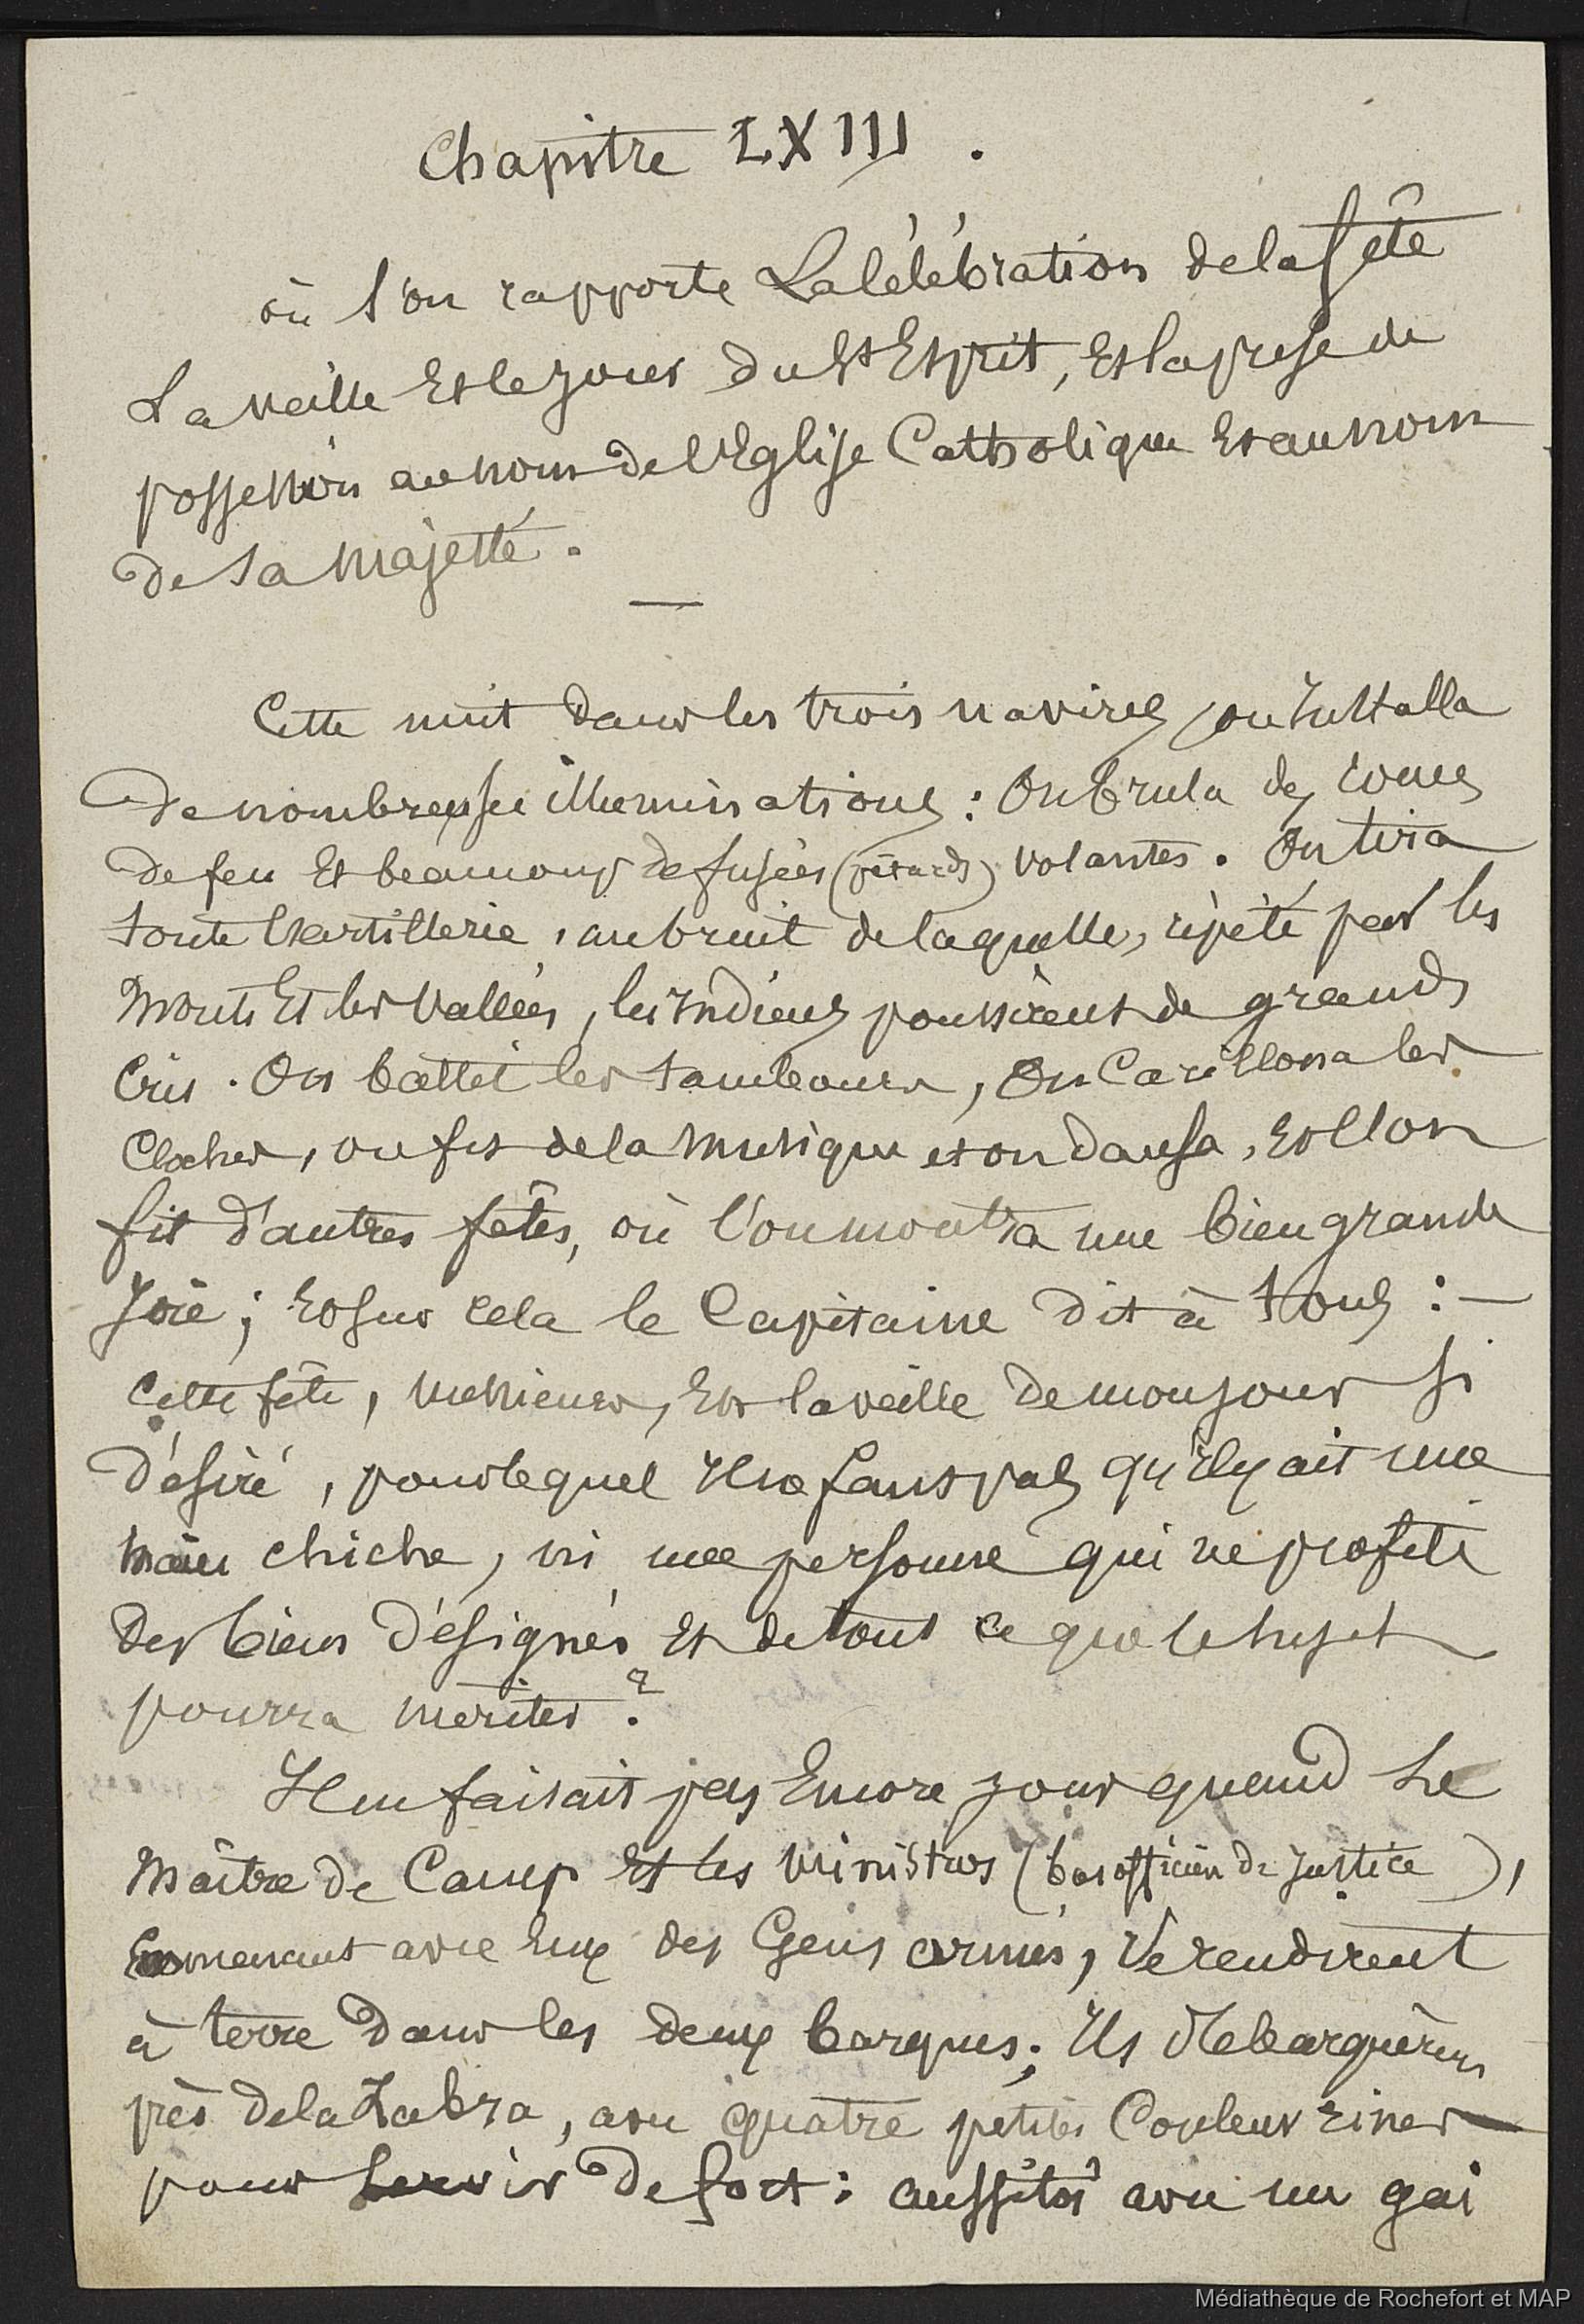 Chapitre LXIII.
où l'on rapporte La célébration de la fête
La veille Et le Jour du St Esprit, Et la prise de
possession au nom de l'Eglise Catholique Et au nom
de Sa Majesté.
Cette nuit dans les trois navires, on Installa
de nombreuses illuminations : On brula des roues
de feu Et beaucoup de fusées (pétards) volantes. On tira
toute l'artillerie, au bruit de laquelle, répété par les
Monts Et les Vallées, les Indiens poussèrent de grands
Cris. On battit les tambours, On Carillonna les
Cloches, on fit de la Musique et on dansa, Et l'on
fit d'autres fêtes, où l'on montra une bien grande
Joie ; Et sur cela le Capitaine dit à tous : —
Cette fête, Messieurs, Est la veille de mon jour si
désiré, pour lequel Il ne faut pas qu'il y ait une
main chiche, ni une personne qui ne profite
des biens désignés Et de tout ce que le sujet
pourra mériter ?
Il ne faisait pas Encore jour quand Le
Maître de Camp Et les Ministres (bas officiers de Justice),
Emmenant avec Eux des Gens armés, Se rendirent
à terre dans les deux barques ; Ils débarquèrent
près de la Zabra, avec quatre petites Couleuvrines
pour Servir de fort : aussitôt avec un gai
Médiathèque de Rochefort et MAP